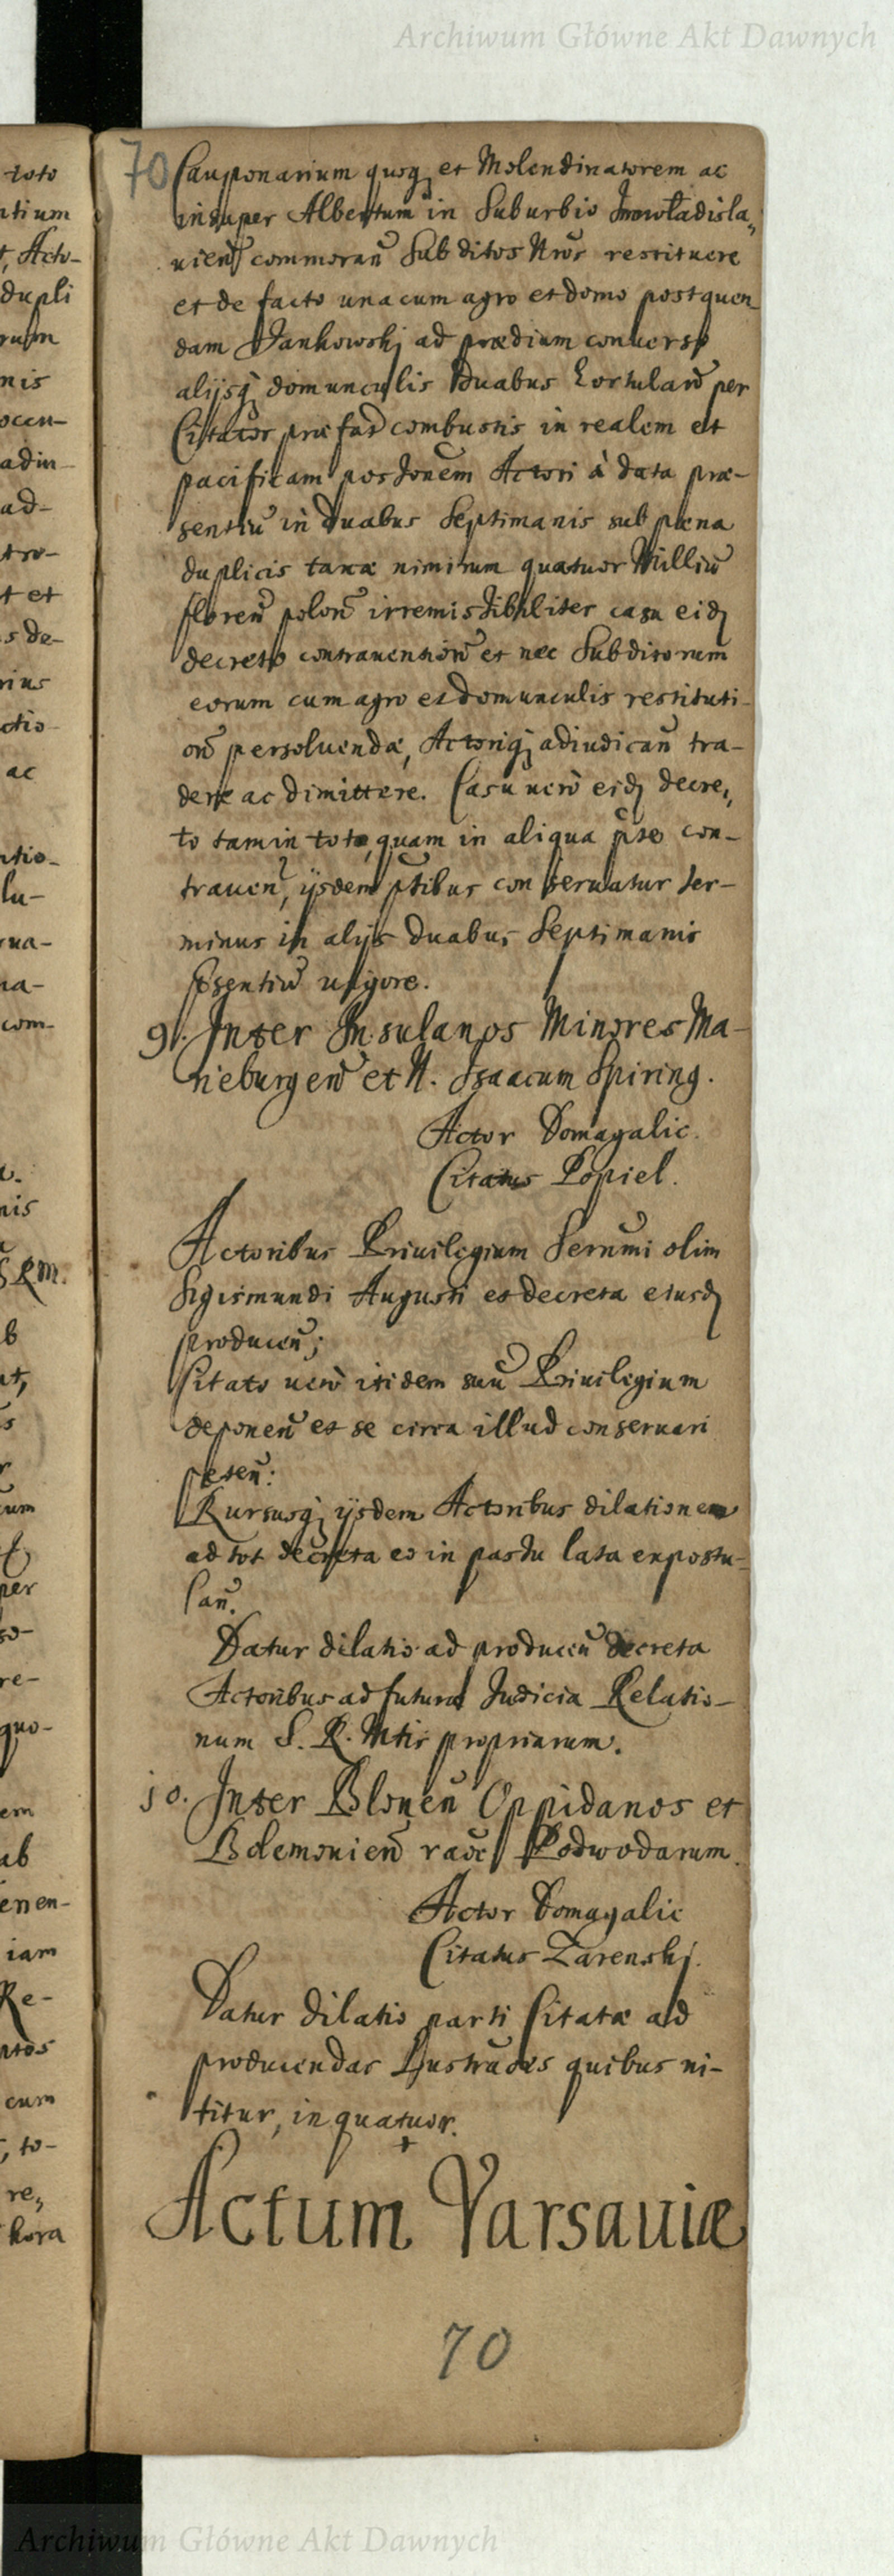 Archiwum Główne Akt Dawnych
70
Cauponarium quoq; et Molendinatorem ac
insuper Albertum in Suburbio Inowładisla„
uien commoran Subditos Nros restituere
et de facto una cum agro et domo post quen
dam Jankowskj ad prædium conuerso
alijsq; domunculis duabus hortulan per
Citatos præfat combustis in realem et
pacificam possionem Actori à data præ-
sentiu in duabus Septimanis sub pœna
duplicis taxæ nimirum quatuor Milliu
floren polon irremissibiliter casu eid
decreto contrauention et nec Subditorum
eorum cum agro et domunculis restituti-
on persoluendæ, Actoriq; adiudican tra-
dere ac dimittere. Casu uero eid decre„
to tam in toto, quam in aliqua pte con-
trauen, ijsdem ptibus conseruatur ter-
minus in alijs duabus Septimanis
psentiu uigore.
9. Inter Insulanos Minores Ma-
rieburgen et N. Isaacum Spiring.
Actor Domagalic.
Citatus Popiel.
Actoribus Priuilegium Serenmi olim
Sigismundi Augusti et decreta eiusd
producen;
Citato uero itidem suu Priuilegium
deponen et se circa illud conseruari
peten:
Rursusq; ijsdem Actoribus dilationem
ad tot decreta eo in passu lata expostu-
lan.
Datur dilatio ad producen decreta
Actoribus ad futura Judicia Relatio-
num S. R. Mtis propriarum.
10. Inter Blonen Oppidanos et
Bolemouien raoe Podwodarum.
Actor Domagalic
Citatus Zarenskj.
Datur dilatio parti Citatæ ad
producendas Lustraoes quibus ni-
titur, in quatuor.
Actum Varsauiæ
70
Archiwum Główne Akt Dawnych